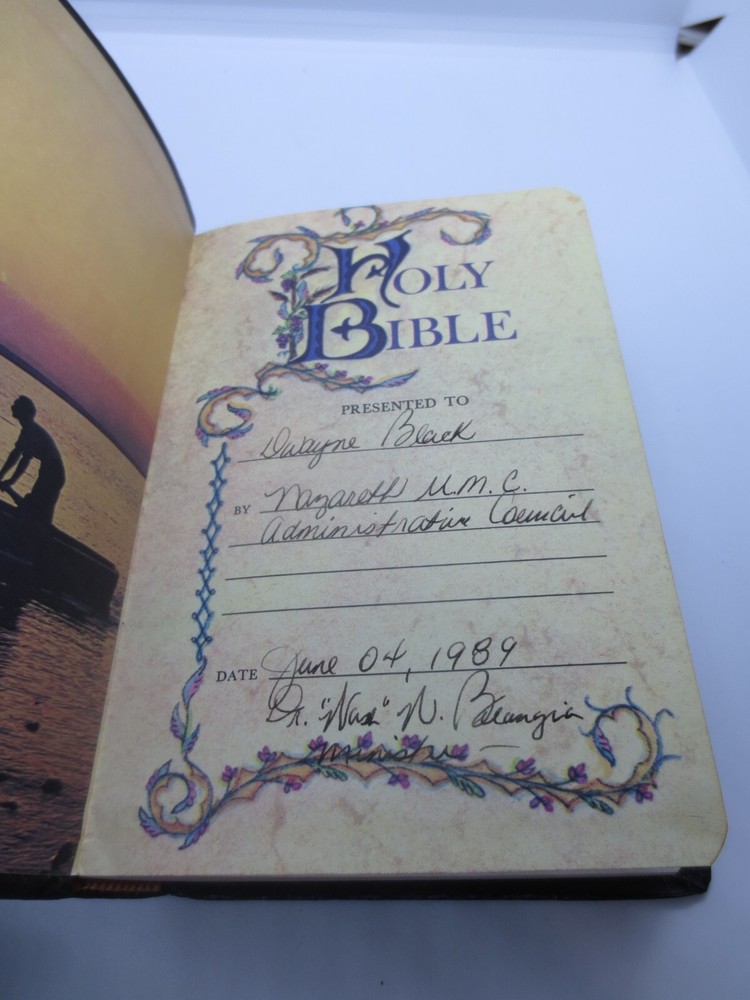 HOLY
BIBLE
PRESENTED TO
Dwayne Black
BY Nazareth U.M.C.
Administrative Council
DATE June 04, 1989
Dr. N.
Minister